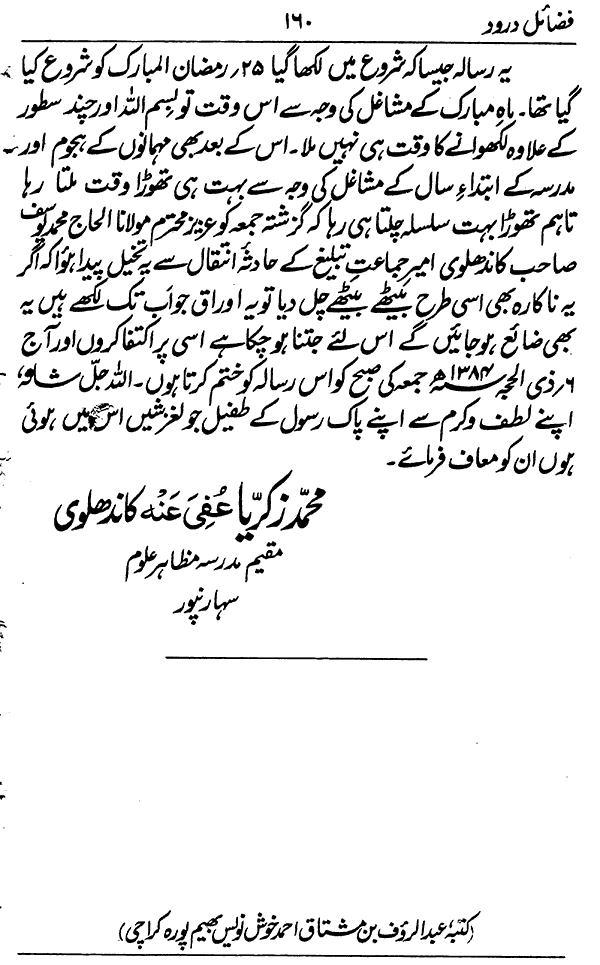 فضائل درود
۱۶۰
یہ رسالہ جیسا کہ شروع میں لکھا گیا ۲۵؍ رمضان المبارک کو شروع کیا
گیا تھا۔ ماہِ مبارک کے مشاغل کی وجہ سے اس وقت تو بسم اللہ اور چند سطور
کے علاوہ لکھوانے کا وقت ہی نہیں ملا۔ اس کے بعد بھی مہمانوں کے ہجوم اور
مدرسہ کے ابتداءِ سال کے مشاغل کی وجہ سے بہت ہی تھوڑا وقت ملتا رہا
تاہم تھوڑا بہت سلسلہ چلتا ہی رہا کہ گزشتہ جمعہ کو عزیز محترم مولانا الحاج محمد یوسف
صاحب کاندھلوی امیر جماعتِ تبلیغ کے حادثۂ انتقال سے یہ تخیل پیدا ہوا کہ اگر
یہ ناکارہ بھی اسی طرح بیٹھے بیٹھے چل دیا تو یہ اوراق جو اَب تک لکھے ہیں یہ
بھی ضائع ہو جائیں گے اس لئے جتنا ہو چکا ہے اسی پر اکتفا کروں اور آج
۶؍ ذی الحجہ ۱۳۸۴ھ جمعہ کی صبح کو اس رسالہ کو ختم کرتا ہوں۔ اللہ جلّ شانہٗ
اپنے لطف و کرم سے اپنے پاک رسول کے طفیل جو لغزشیں اس میں ہوئی
ہوں ان کو معاف فرمائے۔
محمّد زکریّا عُفِیَ عَنْہ کاندھلوی
مقیم مدرسہ مظاہر علوم
سہارنپور
(کتبۂ عبد الرؤف بن مشتاق احمد خوش نویس بھیم پورہ کراچی)